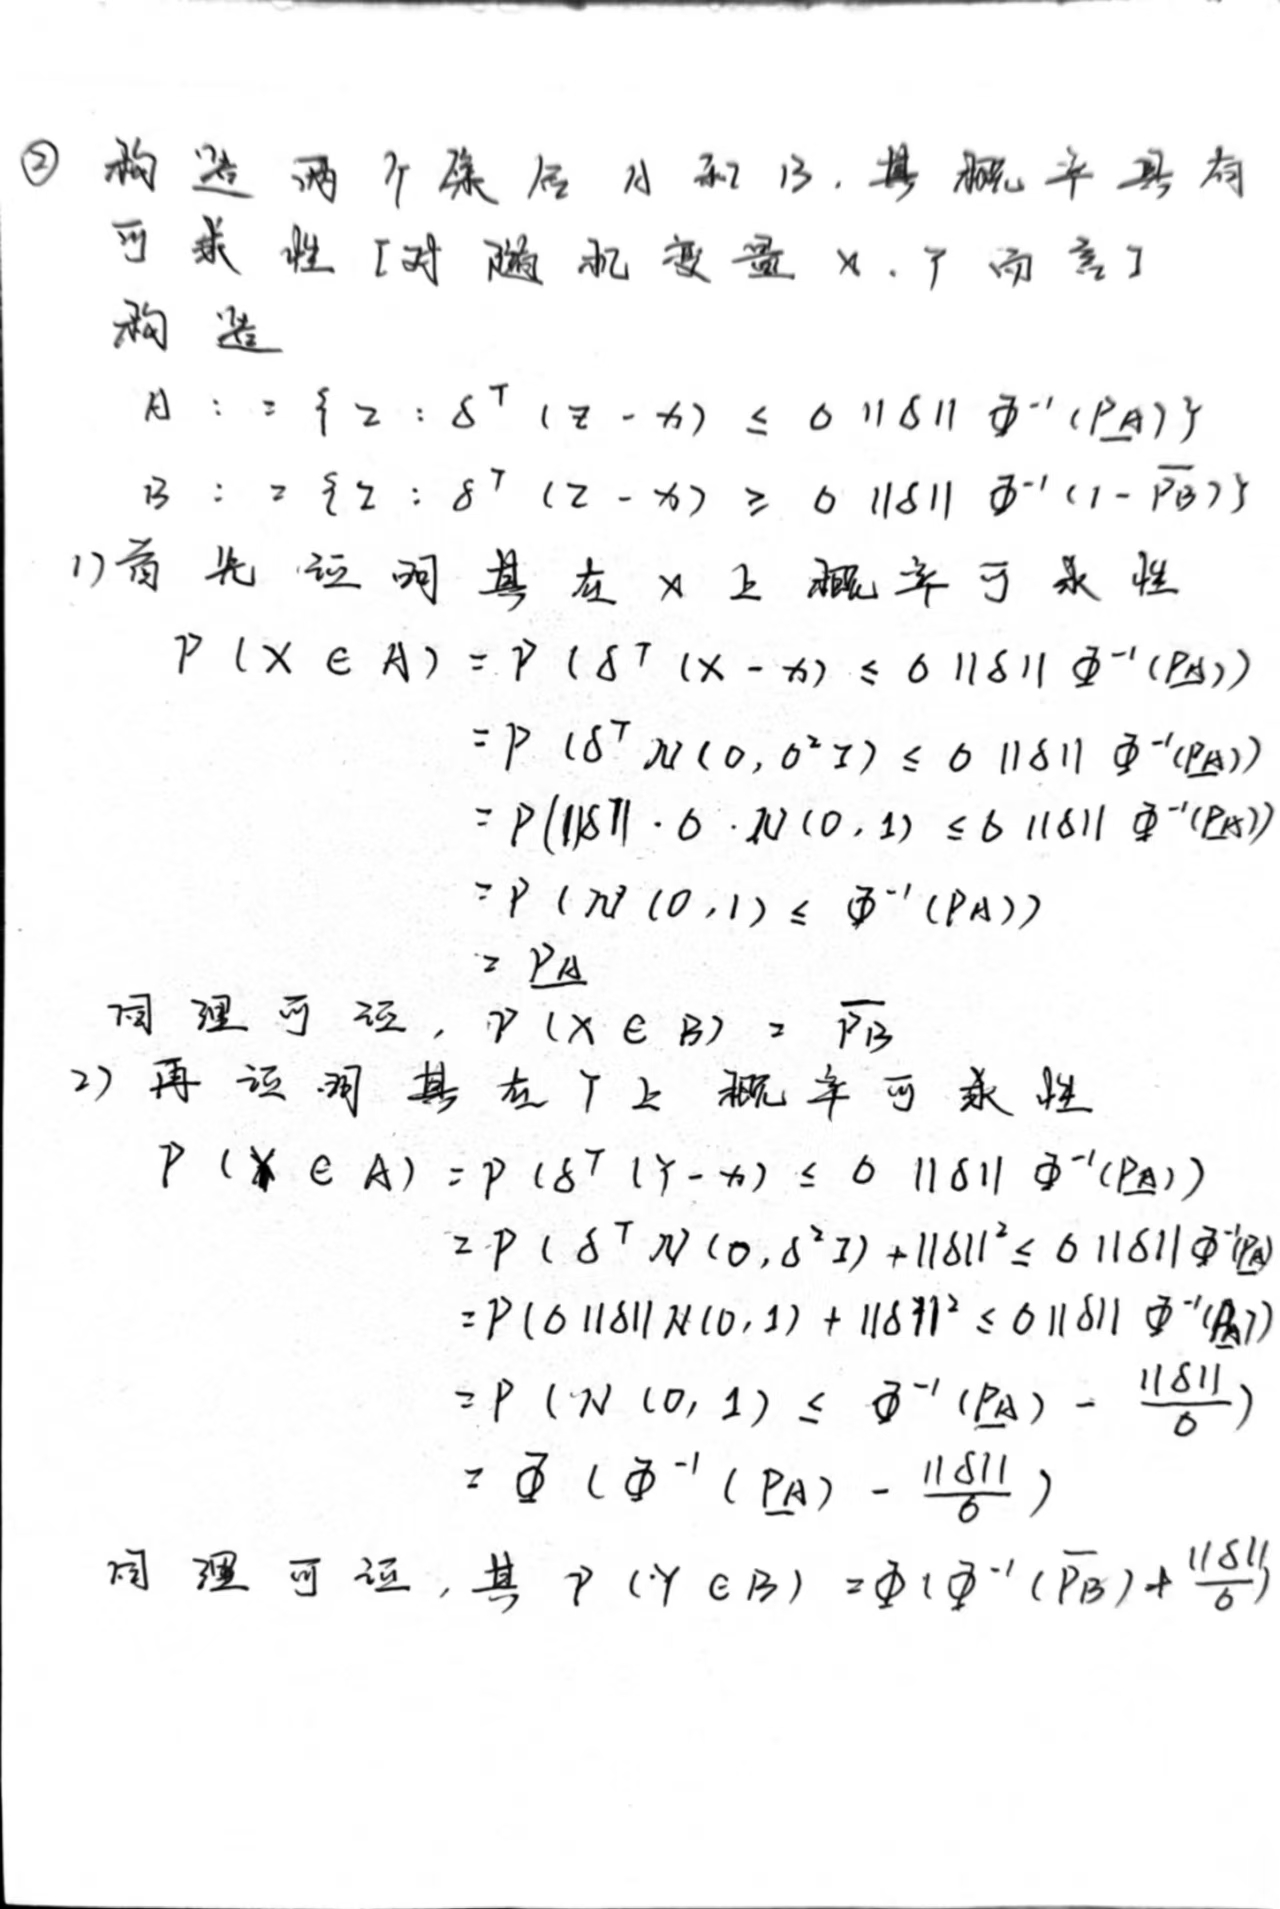 ② 构造两个集合A和B,其概率具有
可求性[对随机变量X、Y而言]
构造
A := {z : δᵀ(z - x) ≤ σ||δ|| Φ⁻¹(p̲A̲)}
B := {z : δᵀ(z - x) ≥ σ||δ|| Φ⁻¹(1 - p̅B̅)}
1) 首先证明其在X上概率可求性
P(X ∈ A) = P(δᵀ(X - x) ≤ σ||δ|| Φ⁻¹(p̲A̲))
= P(δᵀN(0, σ²I) ≤ σ||δ|| Φ⁻¹(p̲A̲))
= P(||δ||·σ·N(0,1) ≤ σ||δ|| Φ⁻¹(p̲A̲))
= P(N(0,1) ≤ Φ⁻¹(PA))
= p̲A̲
同理可证, P(X ∈ B) = p̅B̅
2) 再证明其在Y上概率可求性
P(Y ∈ A) = P(δᵀ(Y - x) ≤ σ||δ|| Φ⁻¹(p̲A̲))
= P(δᵀN(0, δ²I) + ||δ||² ≤ σ||δ|| Φ⁻¹(p̲A̲)
= P(σ||δ||N(0,1) + ||δ||² ≤ σ||δ|| Φ⁻¹(p̲A̲))
= P(N(0,1) ≤ Φ⁻¹(p̲A̲) - ||δ||/σ)
= Φ(Φ⁻¹(p̲A̲) - ||δ||/σ)
同理可证,其P(Y ∈ B) = Φ(Φ⁻¹(p̅B̅) + ||δ||/σ)